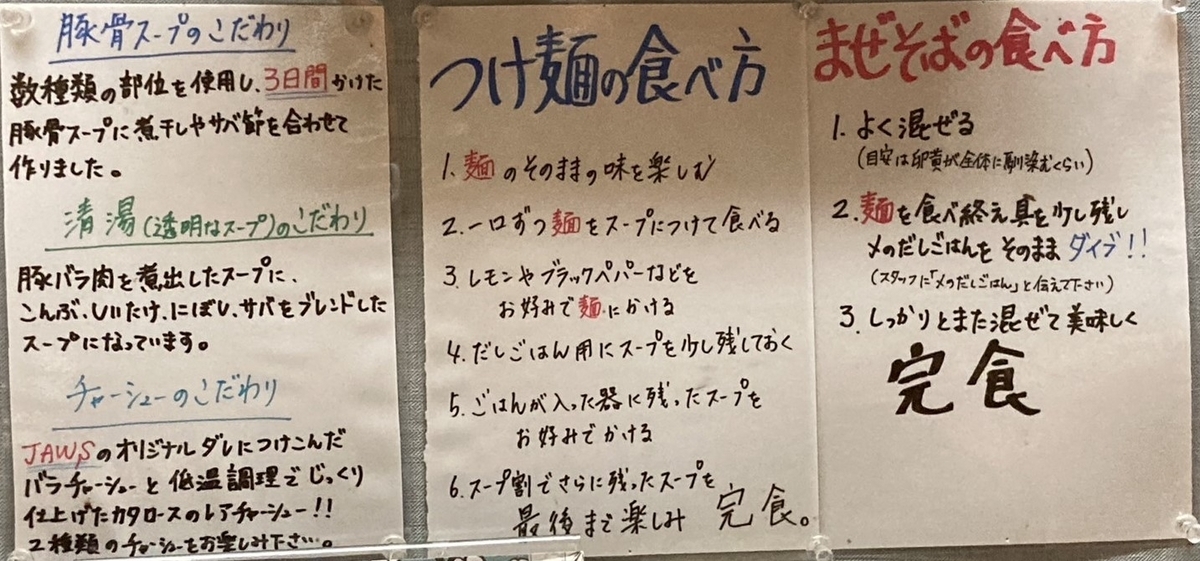 豚骨スープのこだわり
数種類の部位を使用し、3日間かけた
豚骨スープに煮干しやサバ節を合わせて
作りました。
清湯(透明なスープ)のこだわり
豚バラ肉を煮出したスープに、
こんぶ、しいたけ、にぼし、サバをブレンドした
スープになっています。
チャーシューのこだわり
JAWSのオリジナルダレにつけこんだ
バラチャーシューと低温調理でじっくり
仕上げたカタロースのレアチャーシュー!!
2種類のチャーシューをお楽しみ下さい。
つけ麺の食べ方
1. 麺のそのままの味を楽しむ
2. 一口ずつ麺をスープにつけて食べる
3. レモンやブラックペパーなどを
お好みで麺にかける
4. だしごはん用にスープを少し残しておく
5. ごはんが入った器に残ったスープを
お好みでかける
6. スープ割でさらに残ったスープを
最後まで楽しみ 完食。
まぜそばの食べ方
1. よく混ぜる
(目安は卵黄が全体に馴染むくらい)
2. 麺を食べ終え具を少し残し
〆のだしごはんをそのままダイブ!!
(スタッフに「〆のだしごはん」と伝えて下さい)
3. しっかりとまた混ぜて美味しく
完食